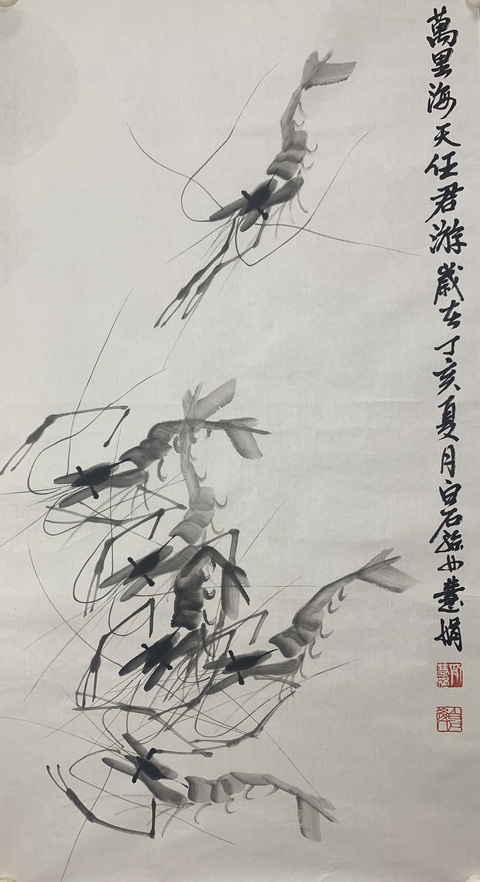 萬里海天任君游歲在丁亥夏月白石孫女慧娟